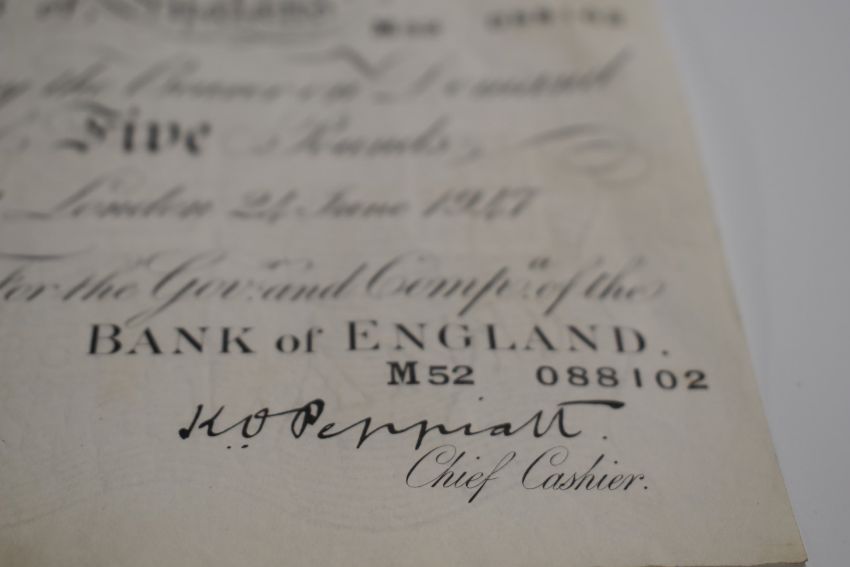 of England
M52 088102
y the Bearer on Demand
Five Pounds
London 24 June 1947
For the Gov.r and Comp.a of the
BANK of ENGLAND.
M52 088102
K.O Peppiatt.
Chief Cashier.